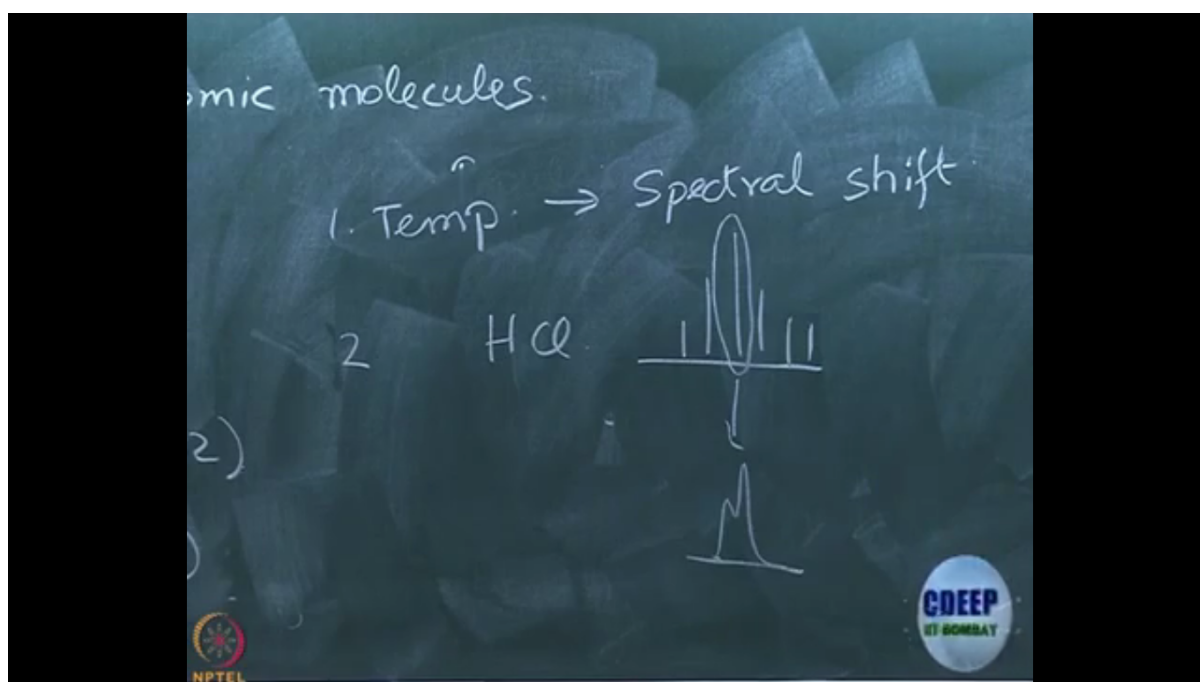 omic molecules.
1. Temp. → Spectral shift
2 HCl.
2)
)
CDEEP
IIT BOMBAY
NPTEL